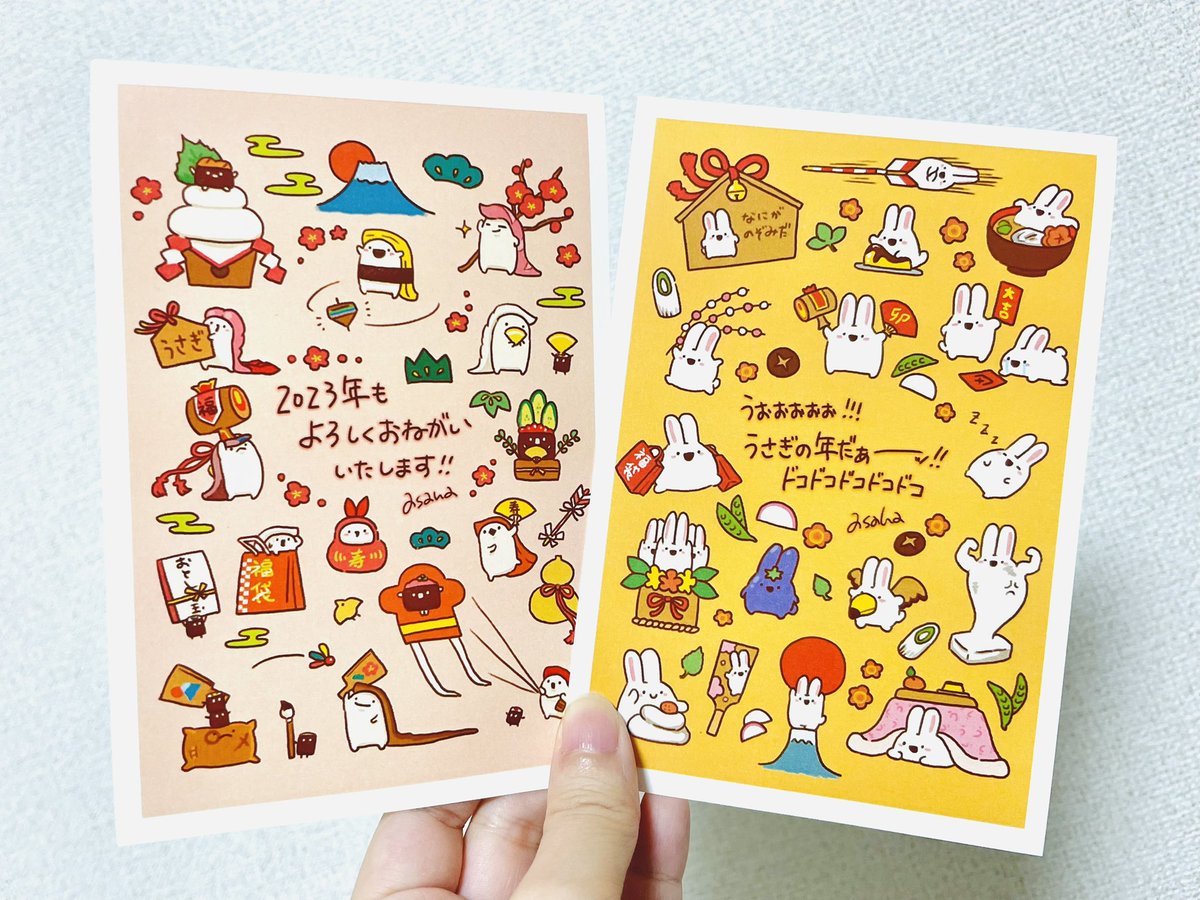 うさぎ
福
2023年も
よろしくおねがい
いたします!!
asana
寿
寿
おと
玉
福袋
なにが
のぞみだ
卯
大吉
凶
うおおおおぉ!!!
うさぎの年だぁー!!
ドコドコドコドコドコ
asana
zzz
福袋